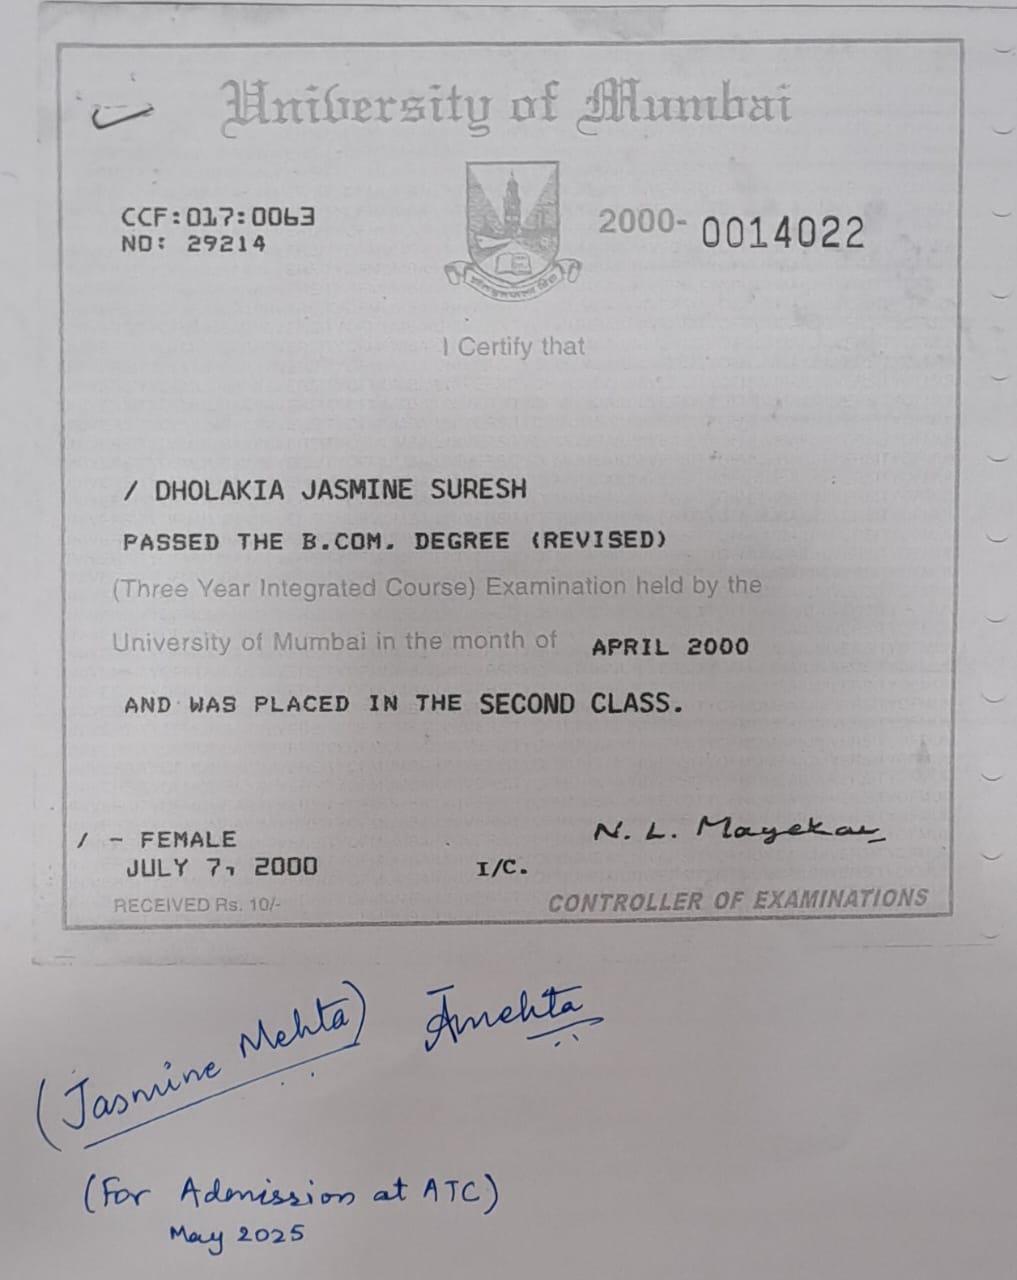 University of Mumbai
CCF:017:0063
NO: 29214
2000- 0014022
I Certify that
/ DHOLAKIA JASMINE SURESH
PASSED THE B.COM. DEGREE (REVISED)
(Three Year Integrated Course) Examination held by the
University of Mumbai in the month of APRIL 2000
AND WAS PLACED IN THE SECOND CLASS.
/ - FEMALE
JULY 7, 2000
I/C.
N. L. Mayekar
RECEIVED Rs. 10/-
CONTROLLER OF EXAMINATIONS
(Jasmine Mehta) Jmehta
(For Admission at ATC)
May 2025